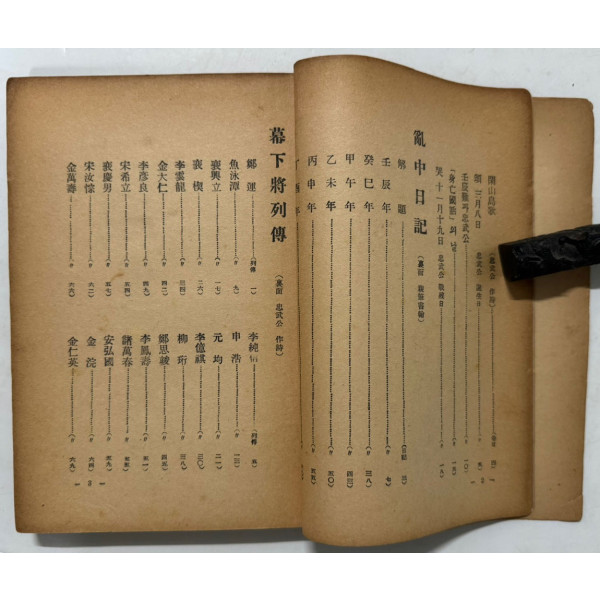 閑山島歌 (忠武公 作詩)
三月八日 忠武公 誕生日
忠武公 (〃 一〇)
「身亡國活」의 날 (〃 一五)
十一月十九日 忠武公 戰死日 (〃 一八)
亂中日記
解題
壬辰年 (〃 七)
癸巳年 (〃 三八)
甲午年 (〃 四三)
乙未年 (〃 五〇)
丙申年 (〃 五五)
幕下將列傳 (裏面 忠武公 作詩)
鄭運 (列傳 一)
李純信 (列傳 五)
魚泳潭 (〃 九)
申浩 (〃 一三)
裵興立 (〃 一七)
元均 (〃 二一)
裵楔 (〃 二六)
李億祺 (〃 三〇)
李雲龍 (〃 三四)
柳珩 (〃 三八)
金大仁 (〃 四二)
鄭思竣 (〃 四五)
李彦良 (〃 四九)
李鳳壽 (〃 五一)
宋希立 (〃 五四)
諸萬春 (〃 五五)
裵慶男 (〃 五七)
安弘國 (〃 五九)
宋汝悰
金浣 (〃 六四)
金萬壽 (〃 六六)
金仁英 (〃 六九)